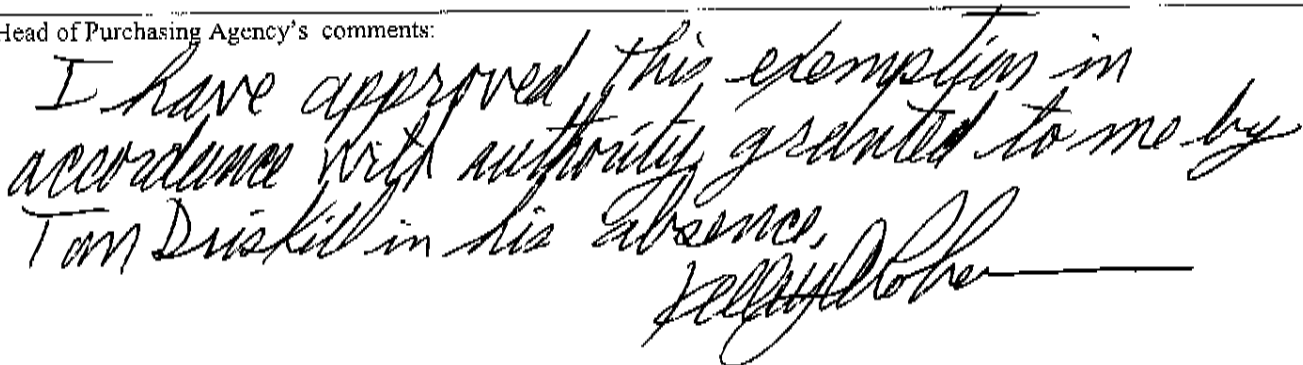 Head of Purchasing Agency's comments:
I have approved this exemption in
accordance with authority granted to me by
Tom Driskill in his absence.